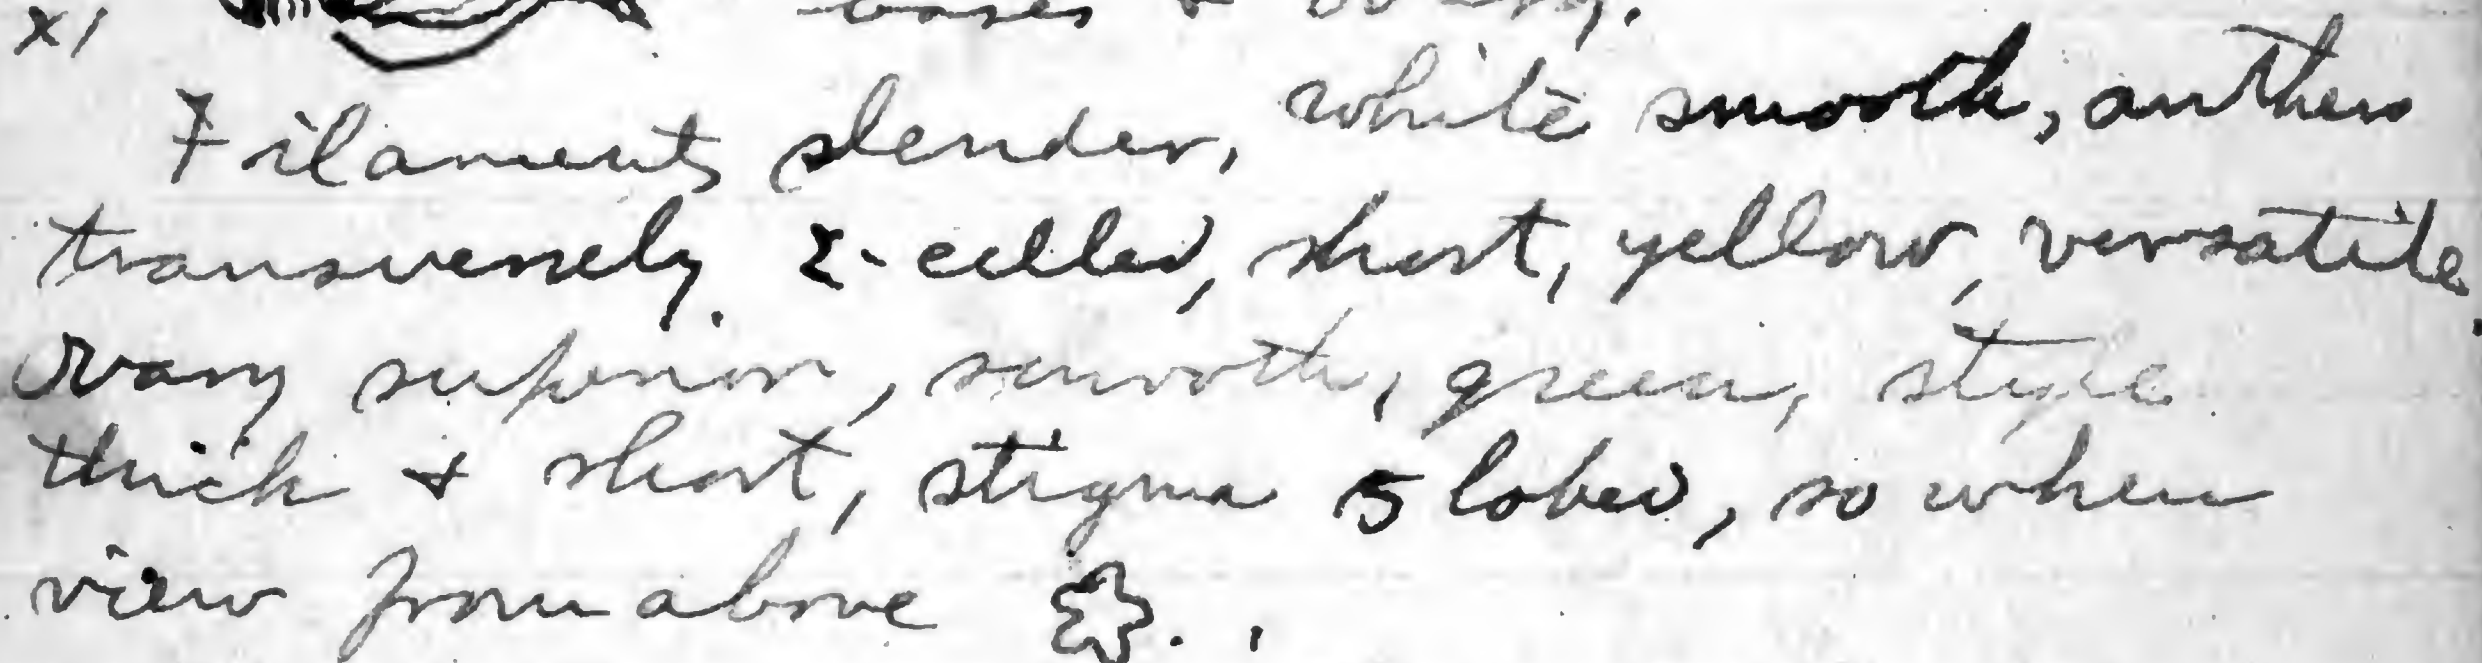 x1 bases + ovary.
Filaments slender, white smooth, anthers
transversely 2-celled, short, yellow, versatile.
Ovary superior, smooth, green, style
thick + short, stigma 5 lobed, so when
view from above